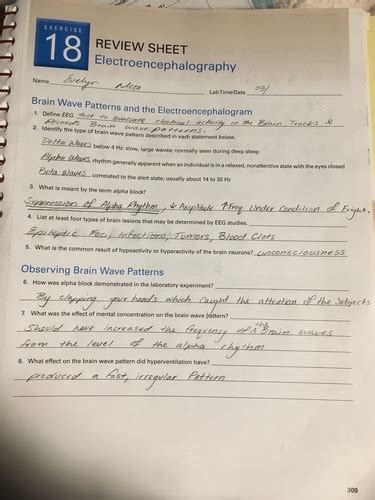 EXERCISE
18
REVIEW SHEET
Electroencephalography
Name Evelyn Meza
Lab Time/Date 03/
Brain Wave Patterns and the Electroencephalogram
1. Define EEG. test to evaluate electrical activity in the Brain. Tracks &
Records Brain wave patterns.
2. Identify the type of brain wave pattern described in each statement below.
Delta Waves below 4 Hz; slow, large waves; normally seen during deep sleep
Alpha Waves rhythm generally apparent when an individual is in a relaxed, nonattentive state with the eyes closed
Beta Waves correlated to the alert state; usually about 14 to 30 Hz
3. What is meant by the term alpha block?
Suppression of Alpha Rhythm, ↓ Amplitude ↑ Freq. Under Condition of Fright.
4. List at least four types of brain lesions that may be determined by EEG studies.
Epileptic Foci, Infections, Tumors, Blood Clots
5. What is the common result of hypoactivity or hyperactivity of the brain neurons? unconsciousness
Observing Brain Wave Patterns
6. How was alpha block demonstrated in the laboratory experiment?
By clapping your hands which caught the attention of the Subjects
7. What was the effect of mental concentration on the brain wave pattern?
Should have increased the frequency of the Brain waves
from the level of the alpha rhythm
8. What effect on the brain wave pattern did hyperventilation have?
produced a fast, irregular Pattern
309